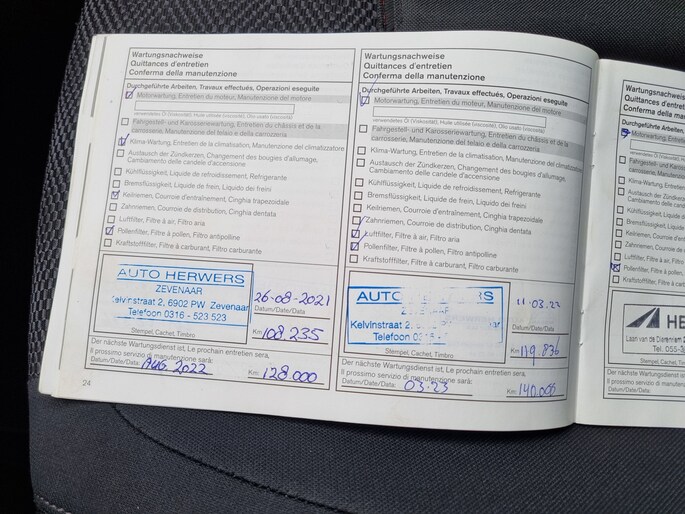 Wartungsnachweise
Quittances d'entretien
Conferma della manutenzione
Durchgeführte Arbeiten, Travaux effectués, Operazioni eseguite
Motorwartung, Entretien du moteur, Manutenzione del motore
verwendetes Öl (Viskosität), Huile utilisée (viscosité), Olio usato (viscosità)
Fahrgestell- und Karosseriewartung, Entretien du châssis et de la
carrosserie, Manutenzione del telaio e della carrozzeria
Klima-Wartung, Entretien de la climatisation, Manutenzione del climatizzatore
Austausch der Zündkerzen, Changement des bougies d'allumage,
Cambiamento delle candele d'accensione
Kühlflüssigkeit, Liquide de refroidissement, Refrigerante
Bremsflüssigkeit, Liquide de frein, Liquido dei freini
Keilriemen, Courroie d'entraînement, Cinghia trapezoidale
Zahnriemen, Courroie de distribution, Cinghia dentata
Luftfilter, Filtre à air, Filtro aria
Pollenfilter, Filtre à pollen, Filtro antipolline
Kraftstofffilter, Filtre à carburant, Filtro carburante
AUTO HERWERS
ZEVENAAR
Kelvinstraat 2, 6902 PW Zevenaar
Telefoon 0316 - 523 523
Stempel, Cachet, Timbro
26-08-2021
Datum/Date/Data
Km 108.235
Der nächste Wartungsdienst ist, Le prochain entretien sera,
Il prossimo servizio di manutenzione sarà:
Datum/Date/Data: Aug. 2022 Km: 128.000
24
Wartungsnachweise
Quittances d'entretien
Conferma della manutenzione
Durchgeführte Arbeiten, Travaux effectués, Operazioni eseguite
Motorwartung, Entretien du moteur, Manutenzione del motore
verwendetes Öl (Viskosität), Huile utilisée (viscosité), Olio usato (viscosità)
Fahrgestell- und Karosseriewartung, Entretien du châssis et de la
carrosserie, Manutenzione del telaio e della carrozzeria
Klima-Wartung, Entretien de la climatisation, Manutenzione del climatizzatore
Austausch der Zündkerzen, Changement des bougies d'allumage,
Cambiamento delle candele d'accensione
Kühlflüssigkeit, Liquide de refroidissement, Refrigerante
Bremsflüssigkeit, Liquide de frein, Liquido dei freini
Keilriemen, Courroie d'entraînement, Cinghia trapezoidale
Zahnriemen, Courroie de distribution, Cinghia dentata
Luftfilter, Filtre à air, Filtro aria
Pollenfilter, Filtre à pollen, Filtro antipolline
Kraftstofffilter, Filtre à carburant, Filtro carburante
AUTO
Kelvinstraat 2
Telefoon
Stempel, Cachet, Timbro
11.03.22
Datum/Date/Data
Km 119.836
Der nächste Wartungsdienst ist, Le prochain entretien sera,
Il prossimo servizio di manutenzione sarà:
Datum/Date/Data: 03-23 Km: 140.000
Wartungsnachweise
Quittances d'entretien
Conferma della man
Durchgeführte Arbeiten,
Motorwartung, Entretien
verwendetes Öl (Viskosität)
Fahrgestell- und Karos
carrosserie, Manutenz
Klima-Wartung, Entreti
Austausch der Zündker
Cambiamento delle can
Kühlflüssigkeit, Liquide
Bremsflüssigkeit, Liquid
Keilriemen, Courroie
Zahnriemen, Courroie
Luftfilter, Filtre à air
Pollenfilter, Filtre à
Kraftstofffilter, Filtre
HE
Laan van de Dierenriem 2
Tel. 055-3
Stempel
Der nächste Wartungsdienst ist, Le p
Il prossimo servizio di manutenzione
Datum/Date/Data: